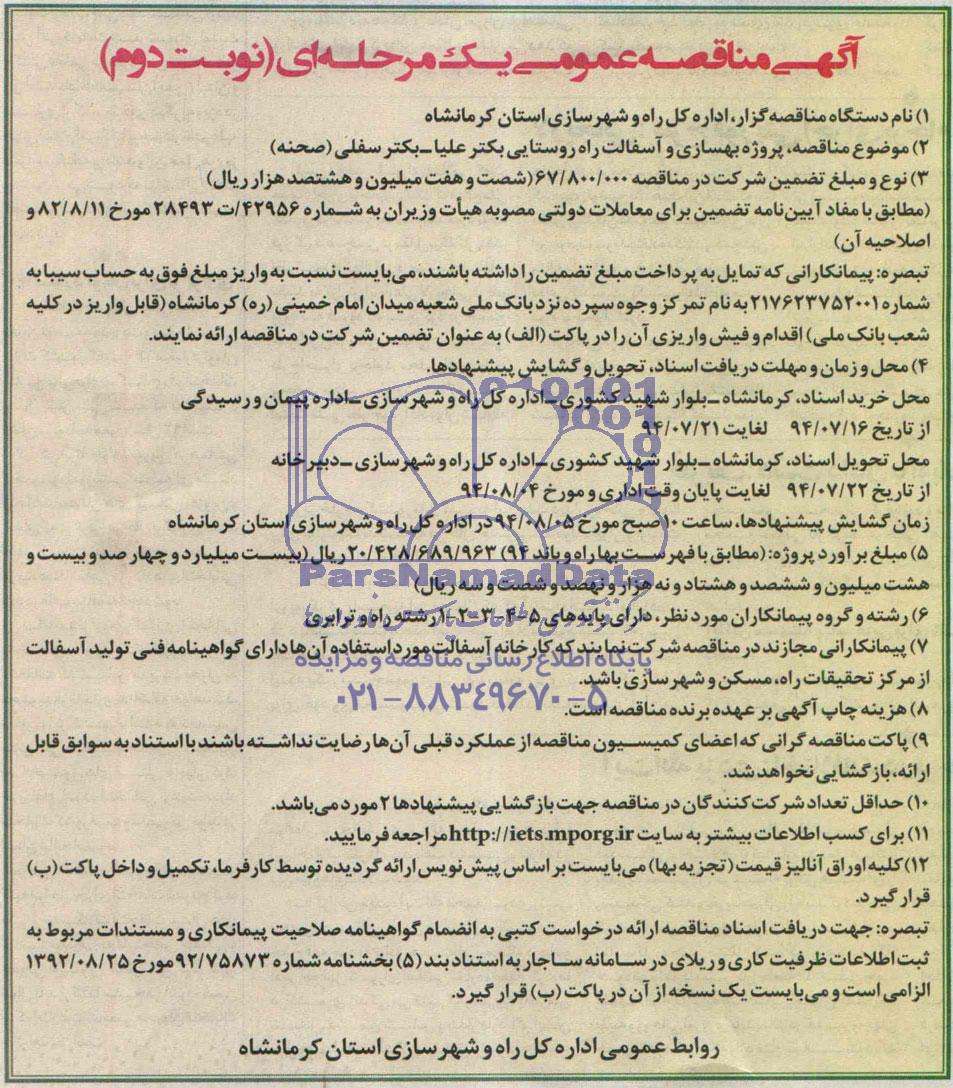 آگهی مناقصه عمومی یک مرحله‌ای (نوبت دوم)
۱) نام دستگاه مناقصه‌گزار، اداره کل راه و شهرسازی استان کرمانشاه
۲) موضوع مناقصه، پروژه بهسازی و آسفالت راه روستایی بکتر علیا ـ بکتر سفلی (صحنه)
۳) نوع و مبلغ تضمین شرکت در مناقصه ۶۷/۸۰۰/۰۰۰ (شصت و هفت میلیون و هشتصد هزار ریال)
(مطابق با مفاد آیین‌نامه تضمین برای معاملات دولتی مصوبه هیأت وزیران به شماره ۴۲۹۵۶/ت ۲۸۴۹۳ مورخ ۸۲/۸/۱۱ و
اصلاحیه آن)
تبصره: پیمانکارانی که تمایل به پرداخت مبلغ تضمین را داشته باشند، می‌بایست نسبت به واریز مبلغ فوق به حساب سیبا به
شماره ۲۱۷۶۲۳۷۵۲۰۰۱ به نام تمرکز وجوه سپرده نزد بانک ملی شعبه میدان امام خمینی (ره) کرمانشاه (قابل واریز در کلیه
شعب بانک ملی) اقدام و فیش واریزی آن را در پاکت (الف) به عنوان تضمین شرکت در مناقصه ارائه نمایند.
۴) محل و زمان و مهلت دریافت اسناد، تحویل و گشایش پیشنهادها.
محل خرید اسناد، کرمانشاه ـ بلوار شهید کشوری ـ اداره کل راه و شهرسازی ـ اداره پیمان و رسیدگی
از تاریخ ۹۴/۰۷/۱۶ لغایت ۹۴/۰۷/۲۱
محل تحویل اسناد، کرمانشاه ـ بلوار شهید کشوری ـ اداره کل راه و شهرسازی ـ دبیرخانه
از تاریخ ۹۴/۰۷/۲۲ لغایت پایان وقت اداری و مورخ ۹۴/۰۸/۰۴
زمان گشایش پیشنهادها، ساعت ۱۰ صبح مورخ ۹۴/۰۸/۰۵ در اداره کل راه و شهرسازی استان کرمانشاه
۵) مبلغ برآورد پروژه: (مطابق با فهرست بها راه و باند ۹۴) ۲۰/۴۲۸/۶۸۹/۹۶۳ ریال (بیست میلیارد و چهار صد و بیست و
ParsNamadData
هشت میلیون و ششصد و هشتاد و نه هزار و نهصد و شصت و سه ریال)
۶) رشته و گروه پیمانکاران مورد نظر، دارای پایه‌های ۵-۴-۳-۲-۱ رشته راه و ترابری
۷) پیمانکارانی مجازند در مناقصه شرکت نمایند که کارخانه آسفالت مورد استفاده آن‌ها دارای گواهینامه فنی تولید آسفالت
پایگاه اطلاع رسانی مناقصه و مزایده
از مرکز تحقیقات راه، مسکن و شهرسازی باشد.
۰۲۱-۸۸۳۴۹۶۷۰-۵
۸) هزینه چاپ آگهی بر عهده برنده مناقصه است.
۹) پاکت مناقصه گرانی که اعضای کمیسیون مناقصه از عملکرد قبلی آن‌ها رضایت نداشته باشند با استناد به سوابق قابل
ارائه، بازگشایی نخواهد شد.
۱۰) حداقل تعداد شرکت کنندگان در مناقصه جهت بازگشایی پیشنهادها ۲ مورد می‌باشد.
۱۱) برای کسب اطلاعات بیشتر به سایت http://iets.mporg.ir مراجعه فرمایید.
۱۲) کلیه اوراق آنالیز قیمت (تجزیه بها) می‌بایست بر اساس پیش‌نویس ارائه گردیده توسط کارفرما، تکمیل و داخل پاکت (ب)
قرار گیرد.
تبصره: جهت دریافت اسناد مناقصه ارائه درخواست کتبی به انضمام گواهینامه صلاحیت پیمانکاری و مستندات مربوط به
ثبت اطلاعات ظرفیت کاری و ریلای در سامانه ساجار به استناد بند (۵) بخشنامه شماره ۹۲/۷۵۸۷۳ مورخ ۱۳۹۲/۰۸/۲۵
الزامی است و می‌بایست یک نسخه از آن در پاکت (ب) قرار گیرد.
روابط عمومی اداره کل راه و شهرسازی استان کرمانشاه